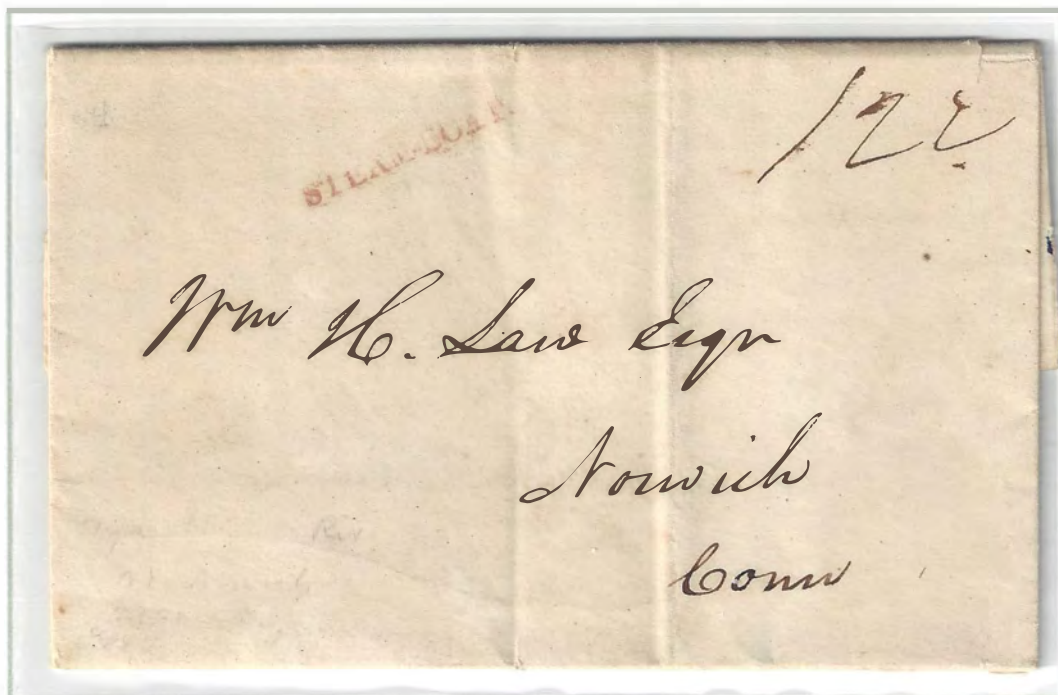 STEAM-BOAT
122
Wm H. Law Esqr
Norwich
Conn